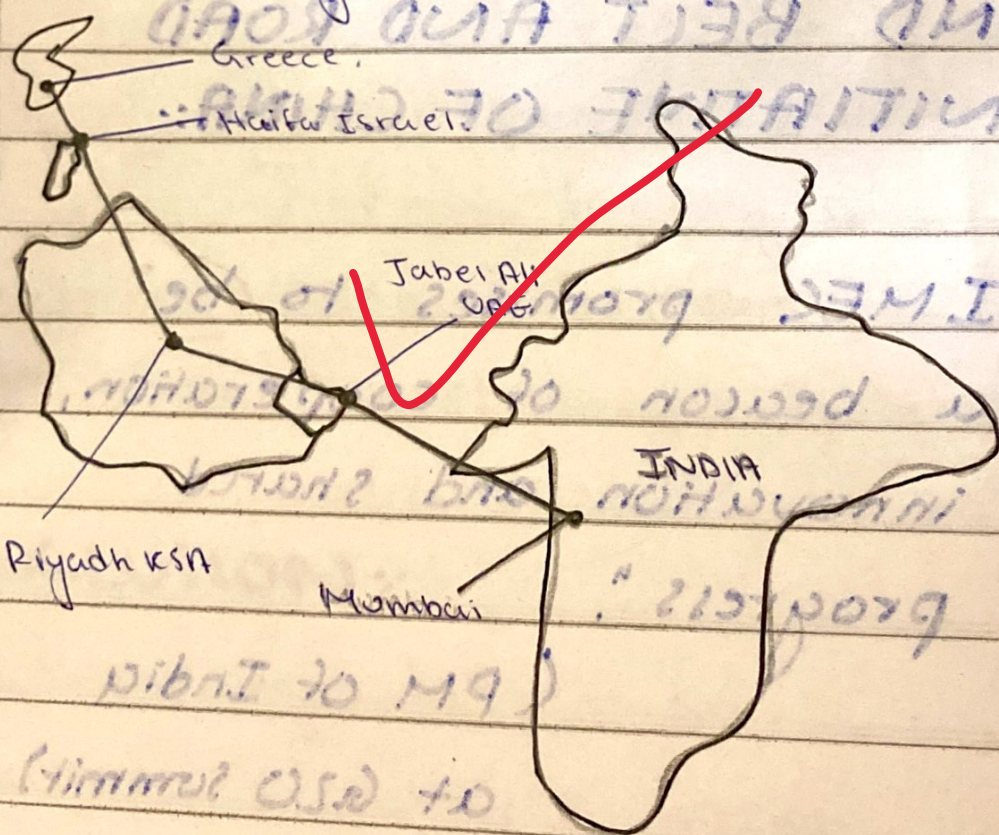 Greece.
Haifa Israel.
Jabel Ali
UAE
INDIA
Riyadh KSA
Mumbai